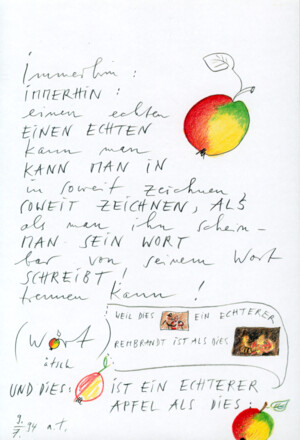 Immerhin:
IMMERHIN:
einen echten
EINEN ECHTEN
kann man
KANN MAN IN
in soweit zeichnen,
SOWEIT ZEICHNEN, ALS
als man ihn schein-
MAN SEIN WORT
bar von seinem Wort
SCHREIBT!
trennen kann!
WEIL DIES EIN ECHTERER
(Wort)
REMBRANDT IST ALS DIES
ätsch
UND DIES: IST EIN ECHTERER
APFEL ALS DIES:
9.
7. 94 a.T.